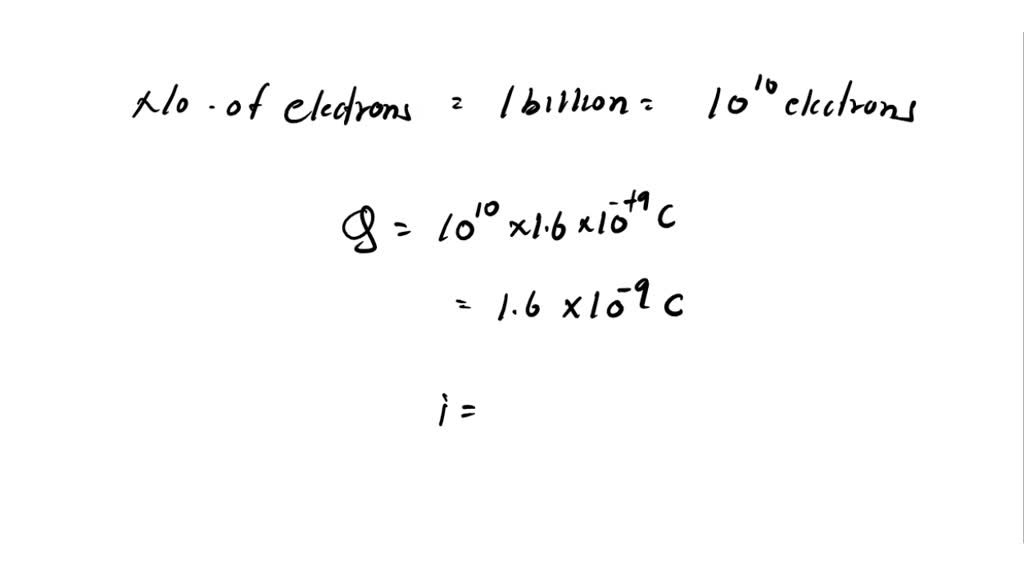 No. of electrons = 1 billion = 10¹⁰ electrons
Q = 10¹⁰ × 1.6 × 10⁻¹⁹ C
= 1.6 × 10⁻⁹ C
i =